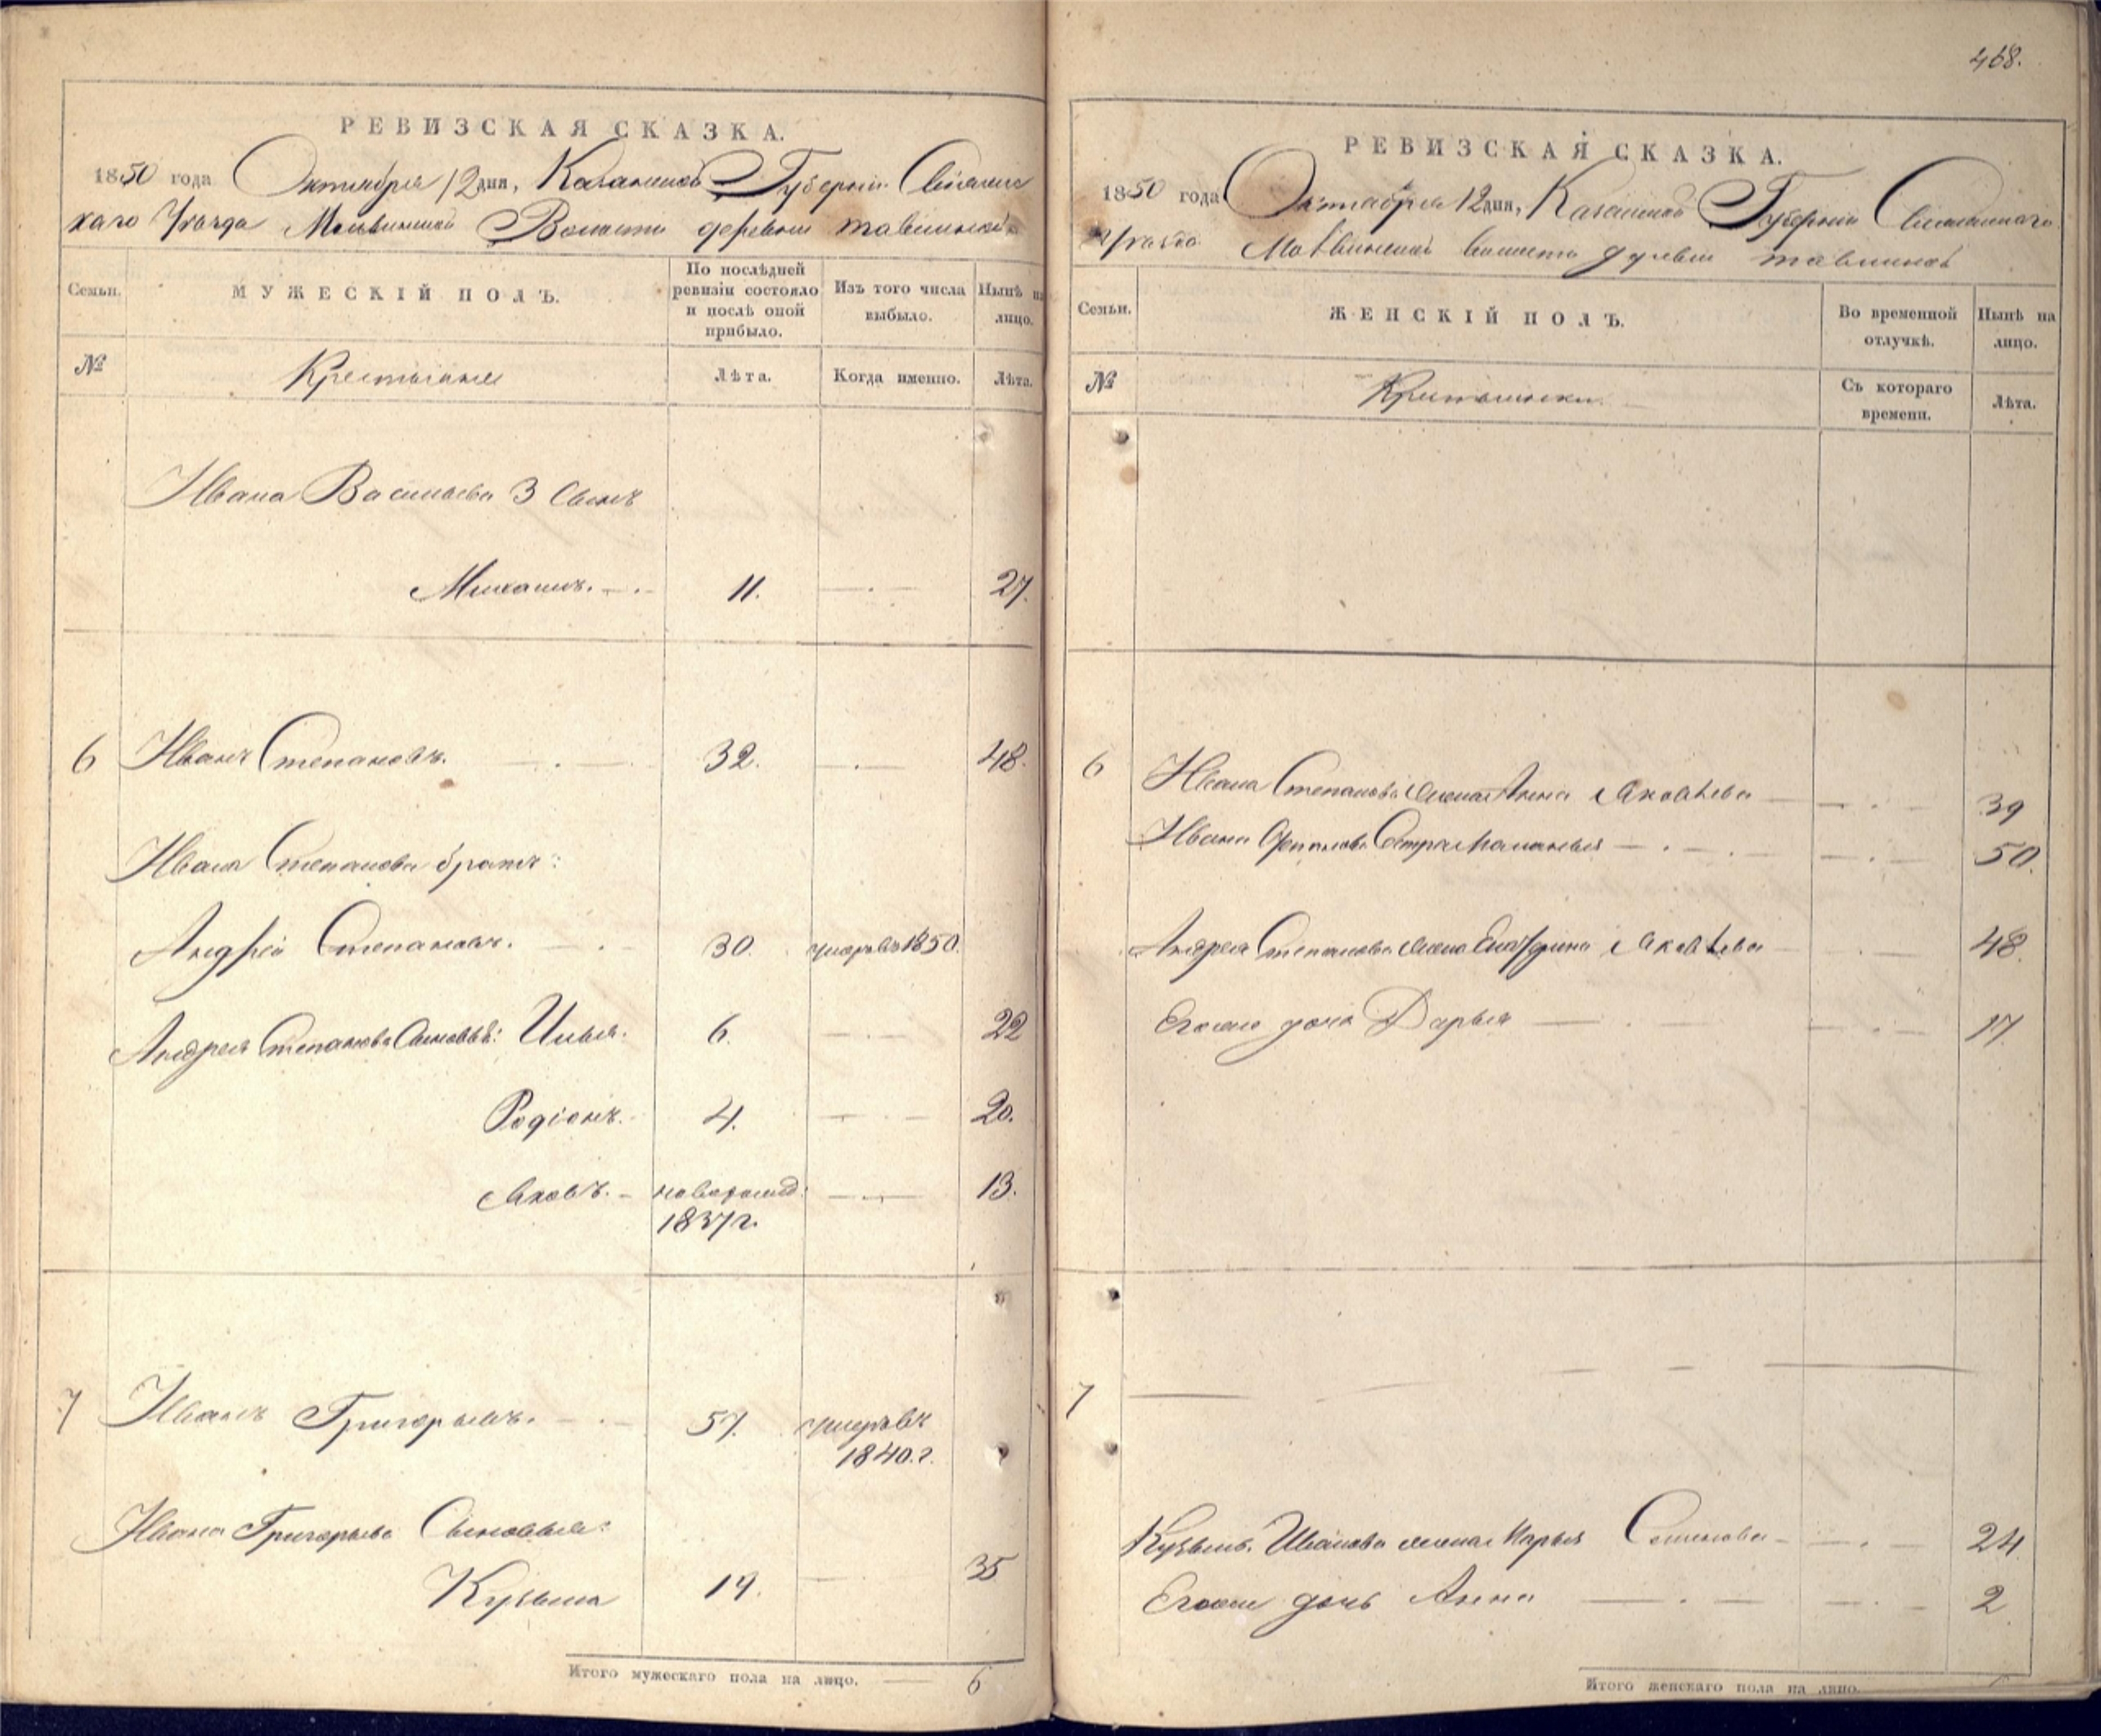 РЕВИЗСКАЯ СКАЗКА.
1850 года Октября 12 дня, Казанской Губернии Свіяжс
каго Уезда Волости деревни тавлиной
Семьи.
МУЖЕСКІЙ ПОЛЪ.
По послѣдней
ревизіи состояло
и послѣ оной
прибыло.
Изъ того числа
выбыло.
Нынѣ на
лицо.
№
Крестьяне
Лѣта.
Когда именно.
Лѣта.
Ивана Васильева 3 Сынъ
Михаилъ. 11. 27.
6 Иванъ Степановъ. 32. 48.
Ивана Степанова братъ:
Андрей Степановъ. 30. умеръ въ 1850.
Андрея Степанова Сыновья: Илья. 6. 22
Родіонъ. 4. 20.
Яковъ. новорожд: 13.
1837 г.
7 Иванъ Григорьевъ. 57. умеръ въ
1840. г.
Ивана Григорьева Сыновья:
Кузьма 19. 35
Итого мужескаго пола на лицо. 6
468.
РЕВИЗСКАЯ СКАЗКА.
1850 года Октября 12 дня, Казанской Губернии Свіяжскаго
Уезда волости деревни тавлиной
Семьи.
ЖЕНСКІЙ ПОЛЪ.
Во временной
отлучкѣ.
Нынѣ на
лицо.
№
Крестьянки.
Съ котораго
времени.
Лѣта.
6 Ивана Степанова жена Анна Яковлева 39
Ивана Степанова Сестра Маланья 50.
Андрея Степанова жена Екатерина Яковлева 48.
Егоже дочь Дарья 17.
7
Кузьмы Иванова жена Марья Семенова 24.
Егоже дочь Анна 2.
Итого женскаго пола на лицо.